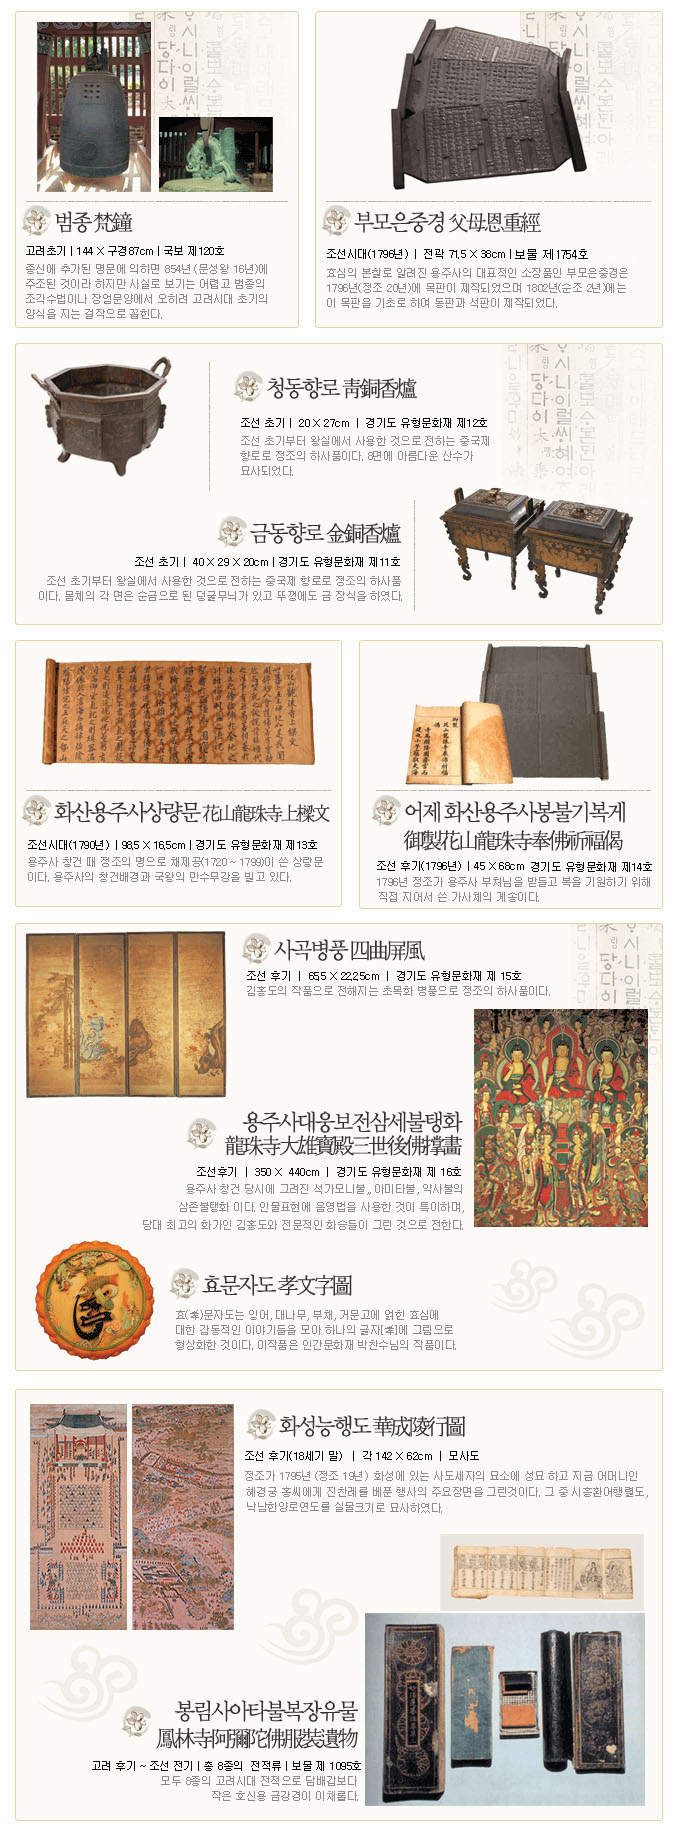 범종 梵鐘
고려초기 | 144 × 구경87cm | 국보 제120호
종신에 추가된 명문에 의하면 854년(문성왕 16년)에
주조된 것이라 하지만 사실로 보기는 어렵고 범종의
조각수법이나 장엄문양에서 오히려 고려시대 초기의
양식을 지는 걸작으로 꼽힌다.
부모은중경 父母恩重經
조선시대(1796년) | 전곽 71.5 × 38cm | 보물 제1754호
효심의 본찰로 알려진 용주사의 대표적인 소장품인 부모은중경은
1796년(정조 20년)에 목판이 제작되었으며 1802년(순조 2년)에는
이 목판을 기초로 하여 동판과 석판이 제작되었다.
청동향로 靑銅香爐
조선 초기 | 20 × 27cm | 경기도 유형문화재 제12호
조선 초기부터 왕실에서 사용한 것으로 전하는 중국제
향로로 정조의 하사품이다. 8면에 아름다운 산수가
묘사되었다.
금동향로 金銅香爐
조선 초기 | 40 × 29 × 20cm | 경기도 유형문화재 제11호
조선 초기부터 왕실에서 사용한 것으로 전하는 중국제 향로로 정조의 하사품
이다. 몸체의 각 면은 순금으로 된 덩굴무늬가 있고 뚜껑에도 금 장식을 하였다.
화산용주사상량문 花山龍珠寺上樑文
조선시대(1790년) | 98.5 × 16.5cm | 경기도 유형문화재 제13호
용주사 창건 때 정조의 명으로 채제공(1720 ~ 1799)이 쓴 상량문
이다. 용주사의 창건배경과 국왕의 만수무강을 빌고 있다.
어제 화산용주사봉불기복게
御製花山龍珠寺奉佛祈福偈
조선 후기(1796년) | 45 × 68cm 경기도 유형문화재 제14호
1796년 정조가 용주사 부처님을 받들고 복을 기원하기 위해
직접 지어서 쓴 가사체의 게송이다.
사곡병풍 四曲屛風
조선 후기 | 65.5 × 22.25cm | 경기도 유형문화재 제 15호
김홍도의 작품으로 전해지는 초목화 병풍으로 정조의 하사품이다.
용주사대웅보전삼세불탱화
龍珠寺大雄寶殿三世後佛撑畵
조선후기 | 350 × 440cm | 경기도 유형문화재 제 16호
용주사 창건 당시에 그려진 석가모니불,, 아미타불, 약사불의
삼존불탱화 이다. 인물표현에 음영법을 사용한 것이 특이하며,
당대 최고의 화가인 김홍도와 전문적인 화승들이 그린 것으로 전한다.
효문자도 孝文字圖
효(孝)문자도는 잉어, 대나무, 부채, 거문고에 얽힌 효심에
대한 감동적인 이야기들을 모아 하나의 글자[孝]에 그림으로
형상화한 것이다. 이작품은 인간문화재 박찬수님의 작품이다.
화성능행도 華成陵行圖
조선 후기(18세기 말) | 각 142 × 62cm | 모사도
정조가 1795년 (정조 19년) 화성에 있는 사도세자의 묘소에 성묘 하고 지금 어머니인
혜경궁 홍씨에게 진찬례를 베푼 행사의 주요장면을 그린것이다. 그 중 시흥환어행렬도,
낙남한양로연도를 실물크기로 묘사하였다.
봉림사아타불복장유물
鳳林寺阿彌陀佛服裝遺物
고려 후기 ~ 조선 전기 | 총 8종의 전적류 | 보물 제 1095호
모두 8종의 고려시대 전적으로 담배갑보다
작은 호신용 금강경이 이채롭다.